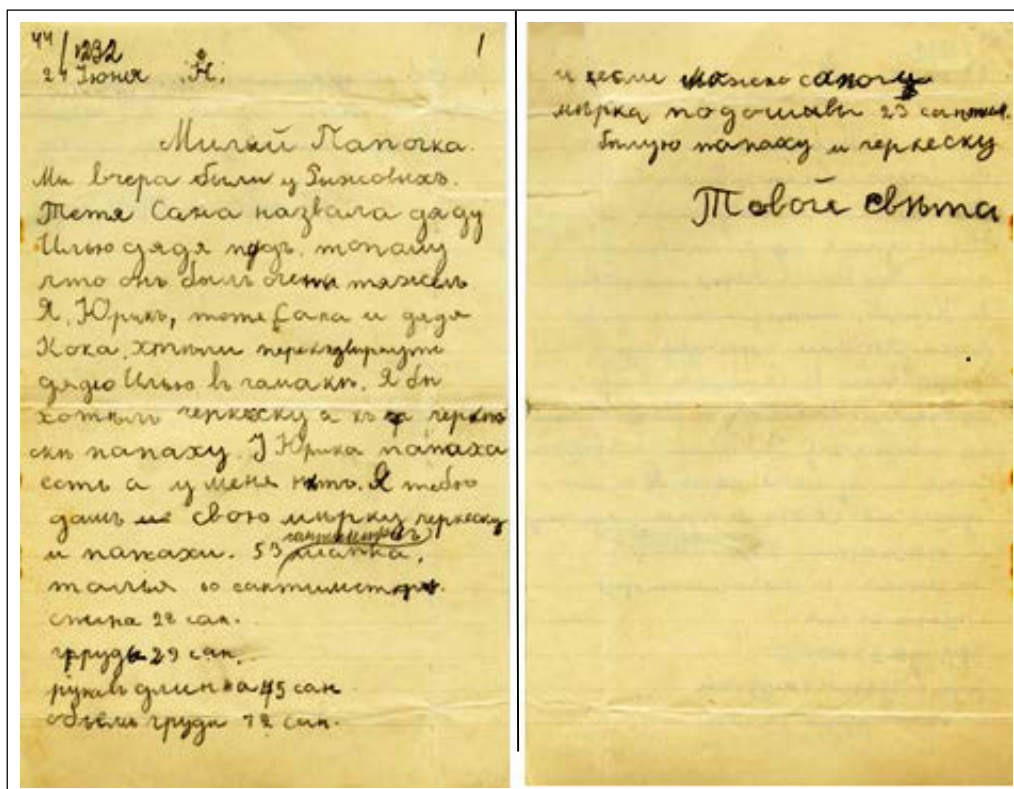 44/1232
24 Июня Н. 1
Милый Папочка.
Ми вчера были у Рыжовихъ.
Тетя Сана назвала дяду
Илью дядя пудъ. топаму
что онъ былъ очень тяжель
Я, Юрикъ, тотя Сана и дядя
Кока, хтѣли
дядю Илью въ гамакѣ. Я бы
хотѣлъ черкеску а къ черкѣ
скѣ папаху. У Юрика папаха
есть а у меня нѣтъ. Я тебѣю
дашь свою мѣрку черкеску
и папахи. 53 сантиметръ шапка,
талья 60 сантиметръ.
спина 28 сан.
грудь 29 сан.
рукавъ длинна 45 сан
объемъ груди 72 сан.
и если можно сапоги
мѣрка подошвы 23 сантим.
бѣлую папаху и черкеску
Твой свѣта